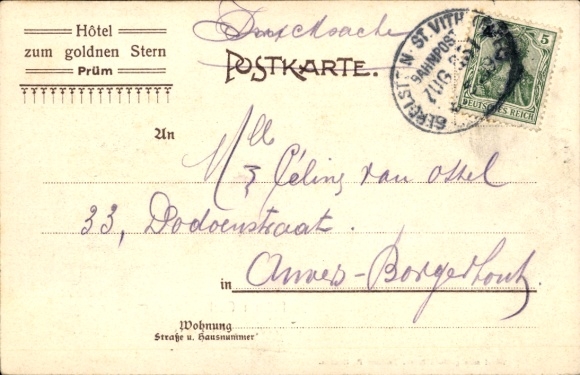 Hôtel
zum goldnen Stern
Prüm
Drucksache
POSTKARTE.
GEROLSTEIN ST. VITH
BAHNPOST
ZUG
5
DEUTSCHES REICH
An
Mlle
Céline van Ossel
33, Dodoenstraat.
in Anvers-Borgerhout.
Wohnung
Straße u. Hausnummer